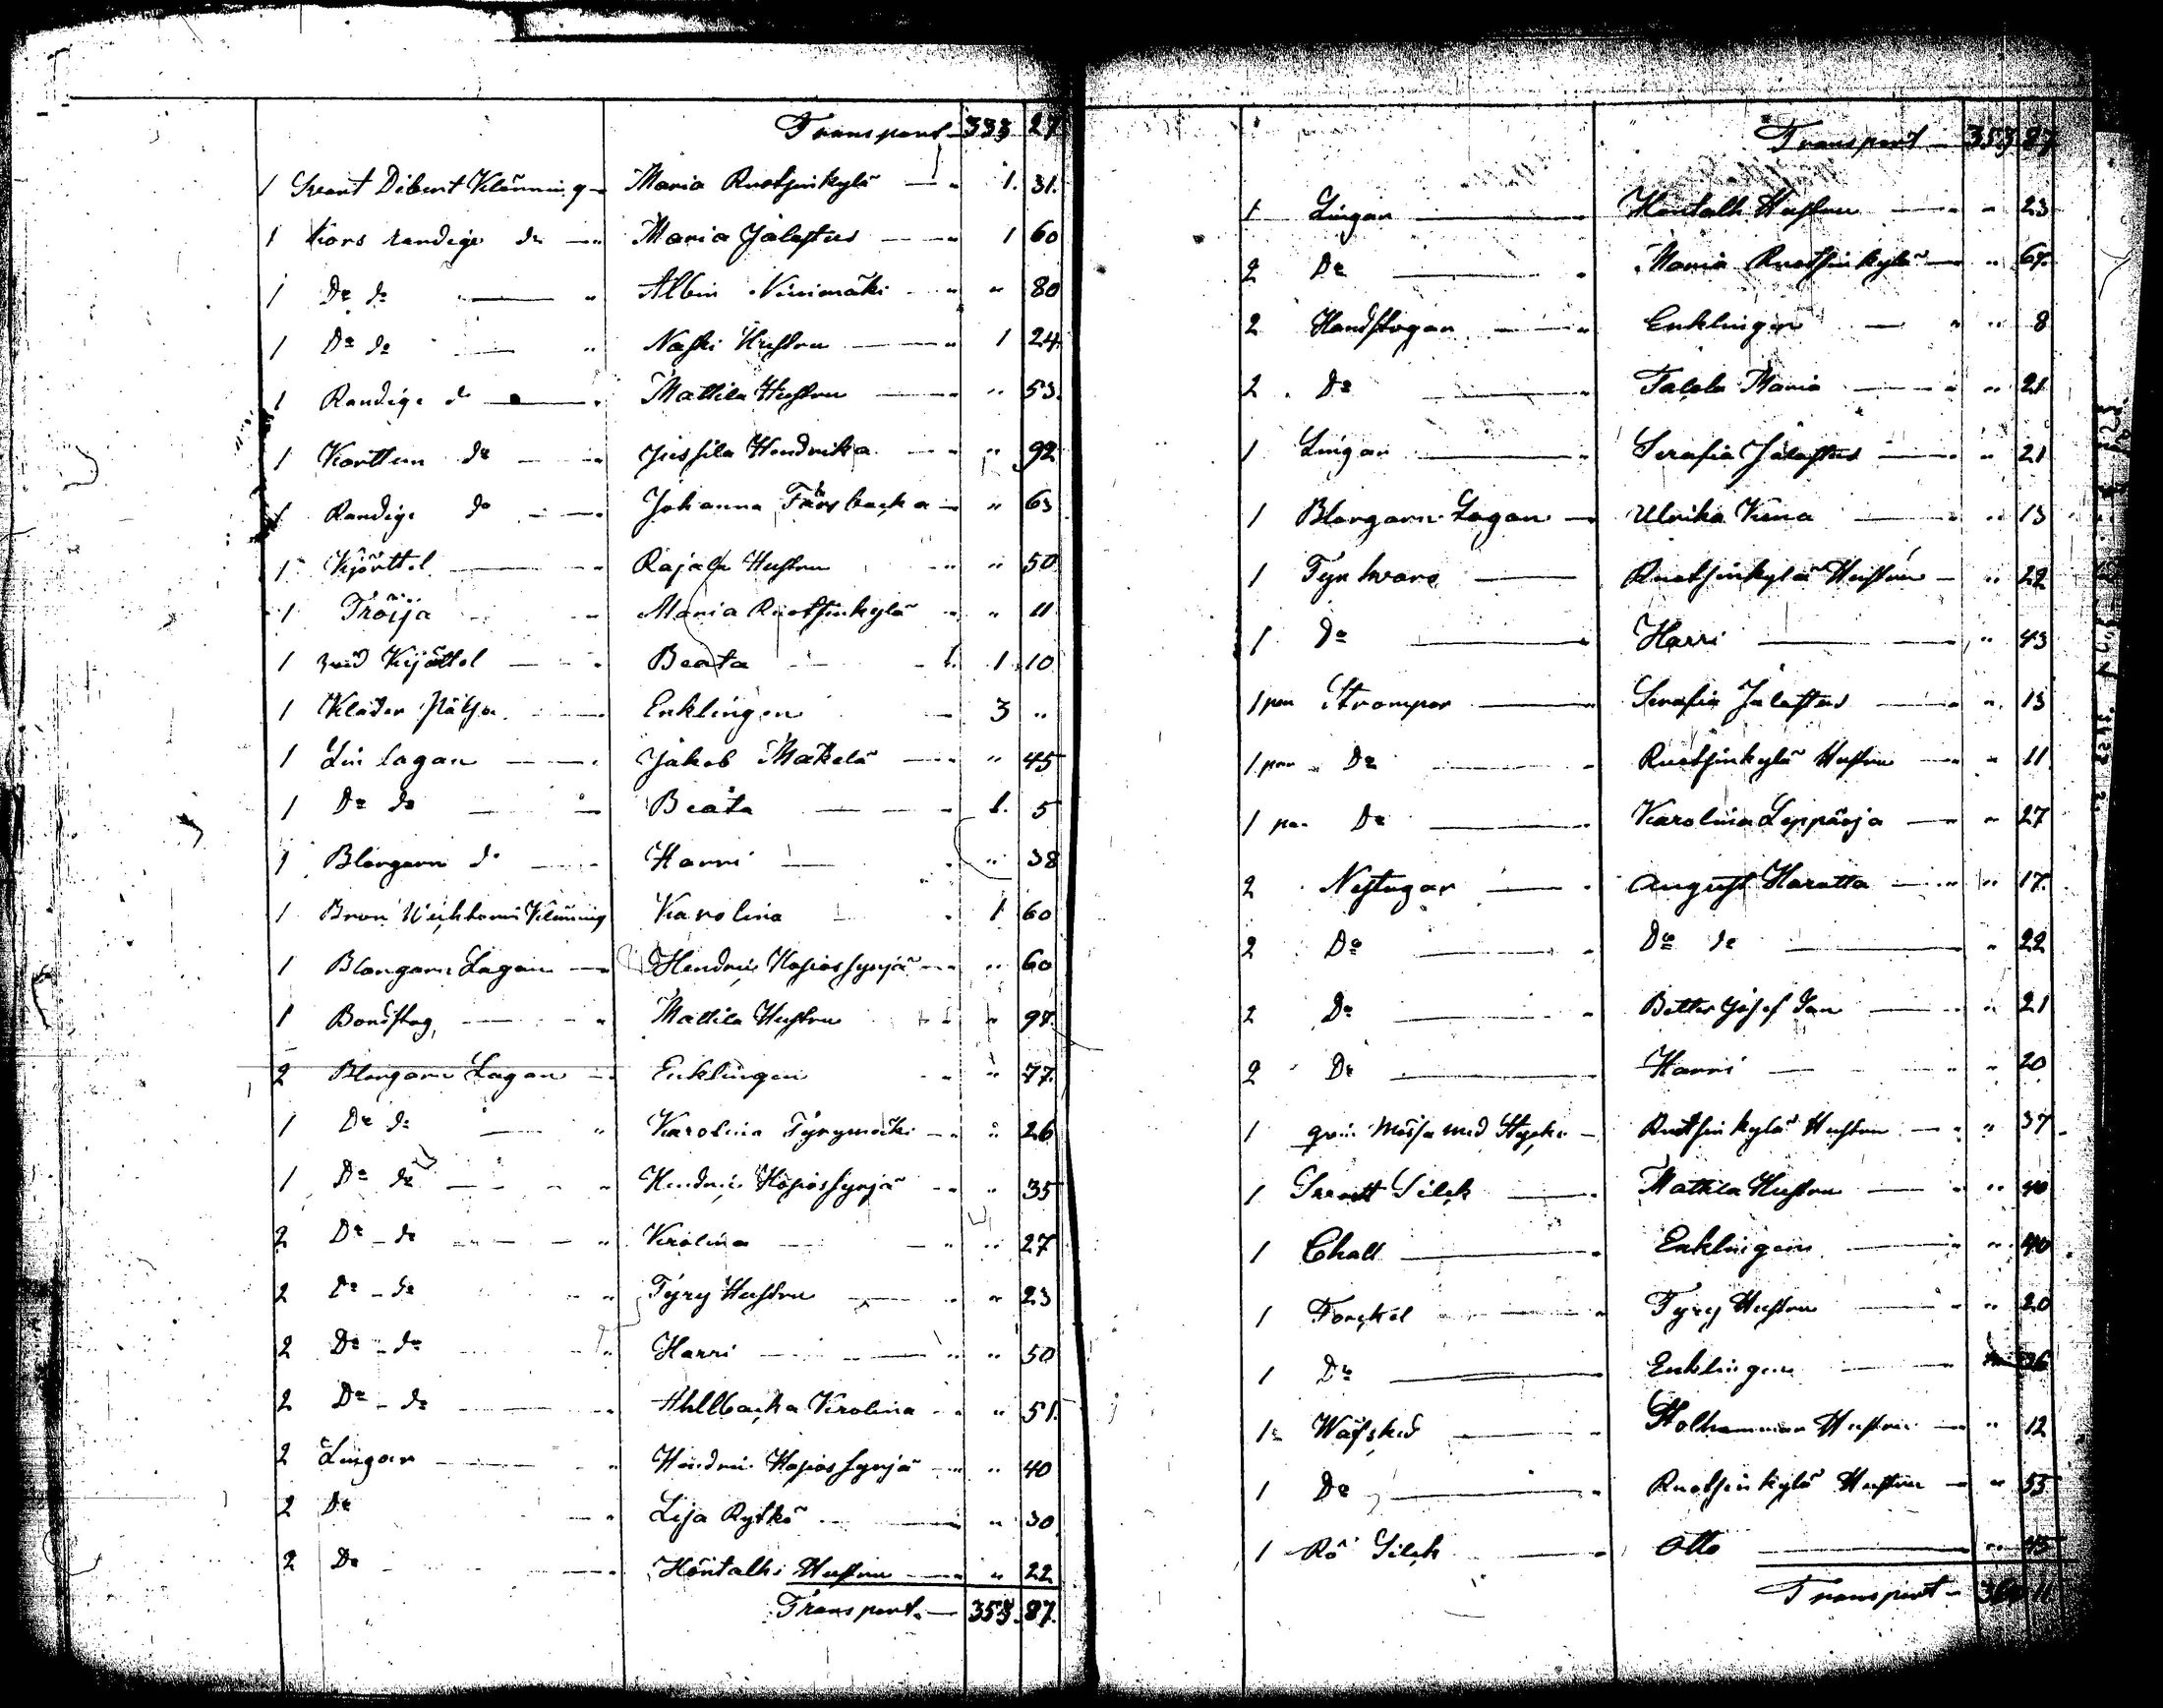 Transport 333 27
1 Svart Dibert Klänning Maria Ruotsinkylä 1. 31.
1 Kors randige do Maria Jålastus 1 60
1 Do do Albin Niinimäki " 80
1 Do do Naski Hustru 1 24.
1 Randige do Mattila Hustru " 53.
1 Korttun do Jussila Hendrika " 92
1 Randige do Johanna Färsbacka " 63
1 Kjörttel Rajala Hustru " 50
1 Tröija Maria Ruotsinkylä " 11
1 Kijöttel Beata 1. 1 10
1 Kläder Enklingen 3 "
1 Lin lagan Jakob Mäkelä " 45
1 Do do Beata 1. 5
1 Blangarn do Harri " 38
1 Brun Klänning Karolina 1 60
1 Blangarn Lagan Hendric Hopiossyrjä " 60
1 Bordstag Mattila Hustru " 97.
2 Blangarn Lagan Enklingen " 77.
1 Do do Karolina Tyrymäki " 26
1 Do do Hendric Hopiossyrjä " 35
2 Do do Krolina " 27
2 Do do Tyry Hustru " 23
2 Do do Harri " 50
2 Do do Ahllbacka Krolina " 51.
2 Lingar Hendric Hopiossyrjä " 40
2 Do Lisa Rytkö " 30
2 Do Höntalhi Hustru " 22
Transport. 353. 87.
Transport 353 87
1 Lingan Hontalh Hustru " 23
2 Do Maria Ruotsinkylä " 67.
2 Handstogan Enklingen " 8
2 Do Talala Maria " 21
1 Lingan Serafia Jålastus " 21
1 Blangarn Lagan Ulrika Kena " 13
1 Fyrkvars Ruotsinkylä Hustru " 22
1 Do Harri " 43
1 par Strompor Serafia Jålastus " 13
1 par Do Ruotsinkylä Hustru " 11
1 par Do Karolina Leppäoja " 27
2 Nestugar August Haratta " 17.
2 Do Do do " 22
2 Do Better Josef Jan " 21
2 Do Harri " 20
1 Mössa med Stycke Ruotsinkylä Hustru " 37
1 Svartt Silck Mattila Hustru " 40
1 Chall Enklingen " 40
1 Forckel Tyry Hustru " 20
1 Do Enklingen 26
1 Wäfsked Stolhammar Hustru " 12
1 Do Ruotsinkylä Hustru " 55
1 Rö Silck Otto " 45
Transport 360 11